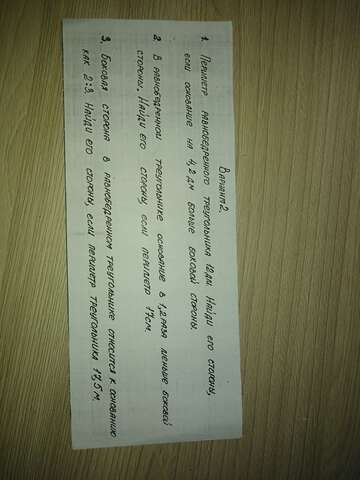 Вариант 2.
1. Периметр равнобедренного треугольника 12 дм. Найди его стороны,
если основание на 4,2 дм больше боковой стороны.
2. В равнобедренном треугольнике основание в 1,2 раза меньше боковой
стороны. Найди его стороны, если периметр 17 см.
3. Боковая сторона в равнобедренном треугольнике относится к основанию
как 2:3. Найди его стороны, если периметр треугольника 17,5 м.